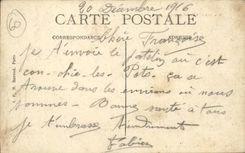 20 Décembre 1916
CARTE POSTALE
CORRESPONDANCE
Chère Françoise
Je t'envoie le
où c'est
con-chie-les-Pots ça se
trouve dans les environs où nous
sommes - Bonne santé à tous
je t'embrasse tendrement
Fabien